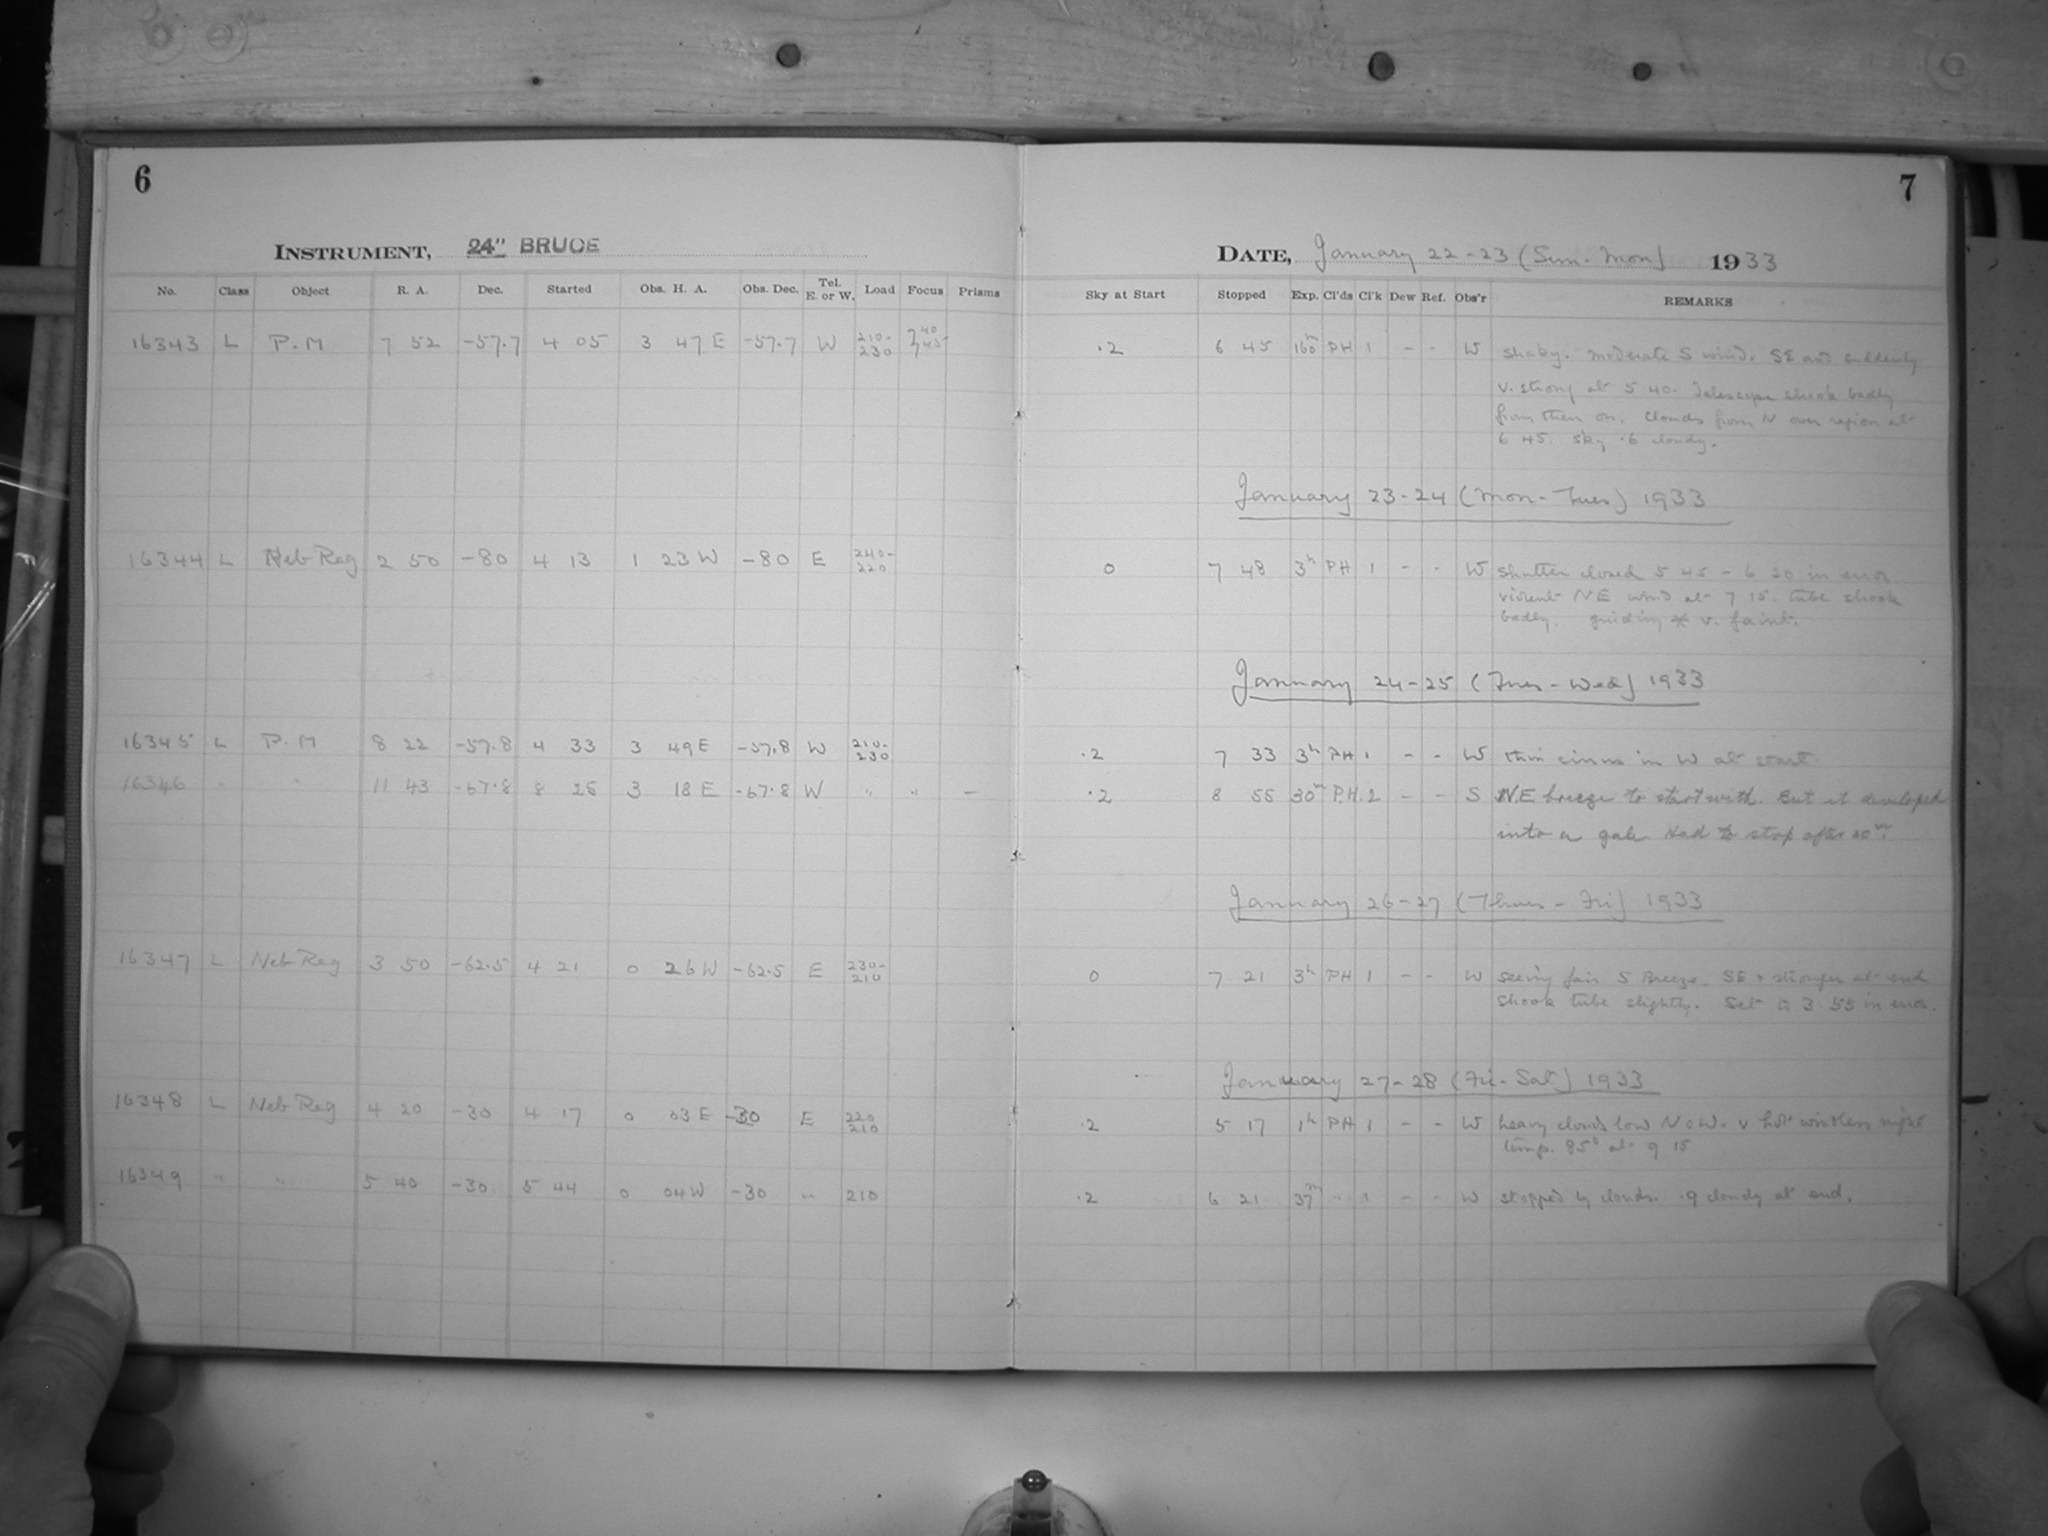 6
7
INSTRUMENT, 24" BRUCE
DATE, January 22-23 (Sun-Mon) 1933
No. Class Object R. A. Dec. Started Obs. H. A. Obs. Dec. Tel. E. or W. Load Focus Prisms Sky at Start Stopped Exp. Cl'ds Cl'k Dew Ref. Obs'r REMARKS
16343 L P.M 7 52 -57.7 4 05 3 47 E -57.7 W 210-230 .2 6 45 160m PH 1 - - W shaky. moderate S wind. SE and suddenly
v. strong at 5 40. Telescope shook badly
from then on. Clouds from N over region at
6 45. sky .6 cloudy.
January 23-24 (Mon-Tues) 1933
16344 L Neb Reg 2 50 -80 4 13 1 23 W -80 E 240-220 0 7 48 3h PH 1 - - W shutter closed 5 45 - 6 20 in error
violent NE wind at 7 15. tube shook
badly. guiding * v. faint.
January 24-25 (Tues-Wed) 1933
16345 L P.M 8 22 -57.8 4 33 3 49 E -57.8 W 210-230 .2 7 33 3h PH 1 - - W thin cirrus in W at start.
16346 " " 11 43 -67.8 8 25 3 18 E -67.8 W " " - .2 8 55 30m P.H. 2 - - S N.E breeze to start with. But it developed
into a gale. Had to stop after 30m.
January 26-27 (Thurs-Fri) 1933
16347 L Neb Reg 3 50 -62.5 4 21 0 26 W -62.5 E 230-210 0 7 21 3h PH 1 - - W seeing fair S Breeze. SE + stronger at end
shook tube slightly. Set 3 55 in error.
January 27-28 (Fri-Sat) 1933
16348 L Neb Reg 4 20 -30 4 17 0 03 E -30 E 220 210 .2 5 17 1h PH 1 - - W heavy clouds low N & W. v hot windless night
temp. 85° at 9 15
16349 " " 5 40 -30 5 44 0 04 W -30 " 210 .2 6 21 37m " 1 - - W stopped by clouds. .9 cloudy at end.